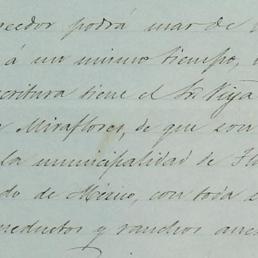 podrá usar de
á un mismo tiempo,
critura tiene el Sr. Viya
Miraflores, de que son
la municipalidad de
do de México, con toda
neductos y ranchos anec